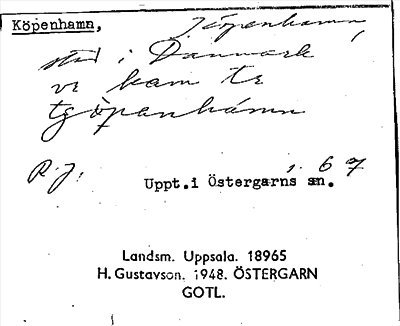 Köpenhamn, Jöpenhamn,
stad i Danmark
vi kam te
tjöpenhamn
R.J. s. 67
Uppt. i Östergarns sn.
Landsm. Uppsala. 18965
H. Gustavson. 1948. ÖSTERGARN
GOTL.